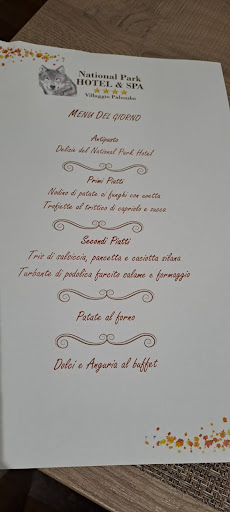 National Park
HOTEL & SPA
Villaggio Palumbo
MENU DEL GIORNO
Antipasto
Delizie del National Park Hotel
Primi Piatti
Nodino di patate ai funghi con
Trofiette al trittico di capriolo e zucca
Secondi Piatti
Tris di salsiccia, pancetta e caciotta silana
Turbante di podolica farcito salame e formaggio
Patate al forno
Dolci e Anguria al buffet